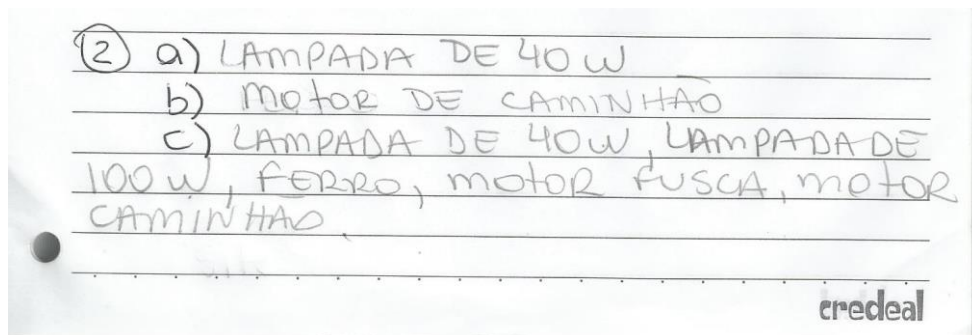 2 a) LAMPADA DE 40 W
b) MOTOR DE CAMINHÃO
c) LAMPADA DE 40W, LAMPADA DE
100 W, FERRO, MOTOR FUSCA, MOTOR
CAMINHAO.
credeal